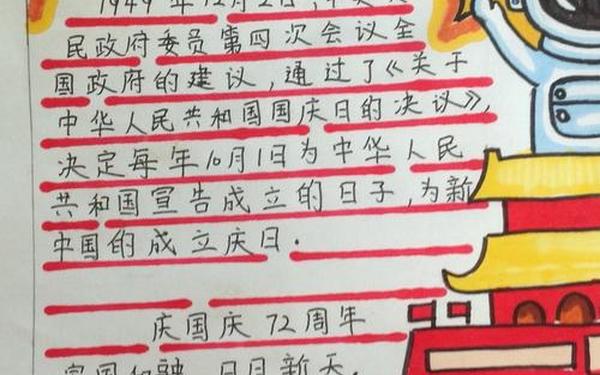 1949年12月2日,中央人
民政府委员第四次会议全
国政府的建议,通过了《关于
中华人民共和国国庆日的决议》,
决定每年10月1日为中华人民
共和国宣告成立的日子,为新
中国的成立庆日.
庆国庆72周年
日月新天.